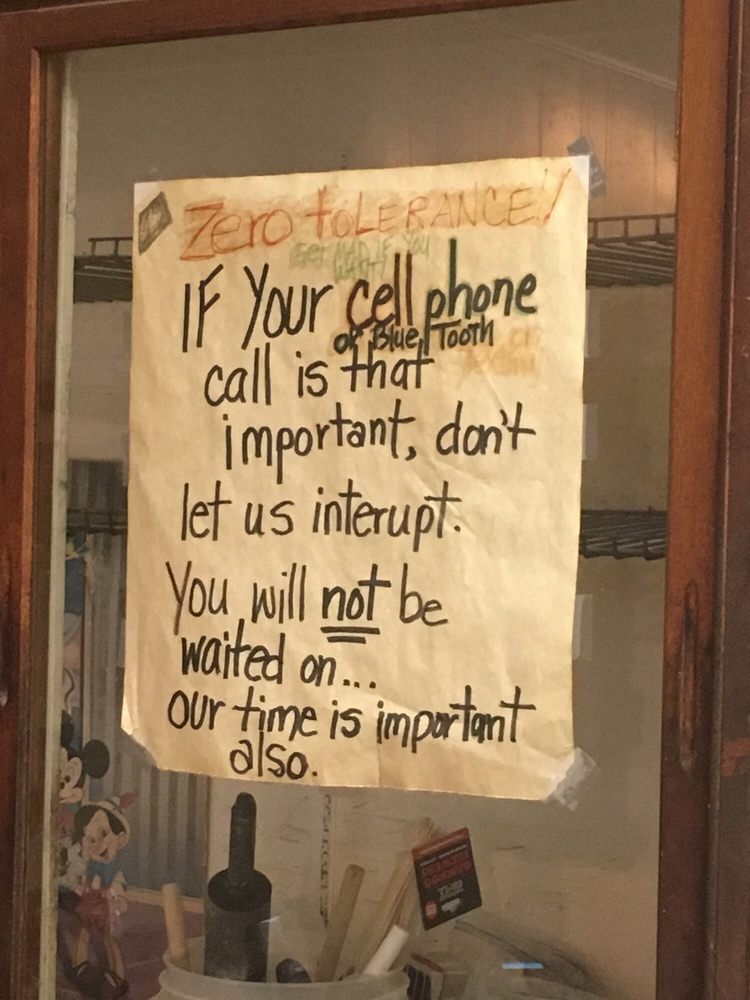 Zero toLERANCE!!
GET MAD IF YOU
WANT!
IF Your cell phone
or Blue Tooth
call is that
important, don't
let us interupt.
You will not be
waited on...
our time is important
also.